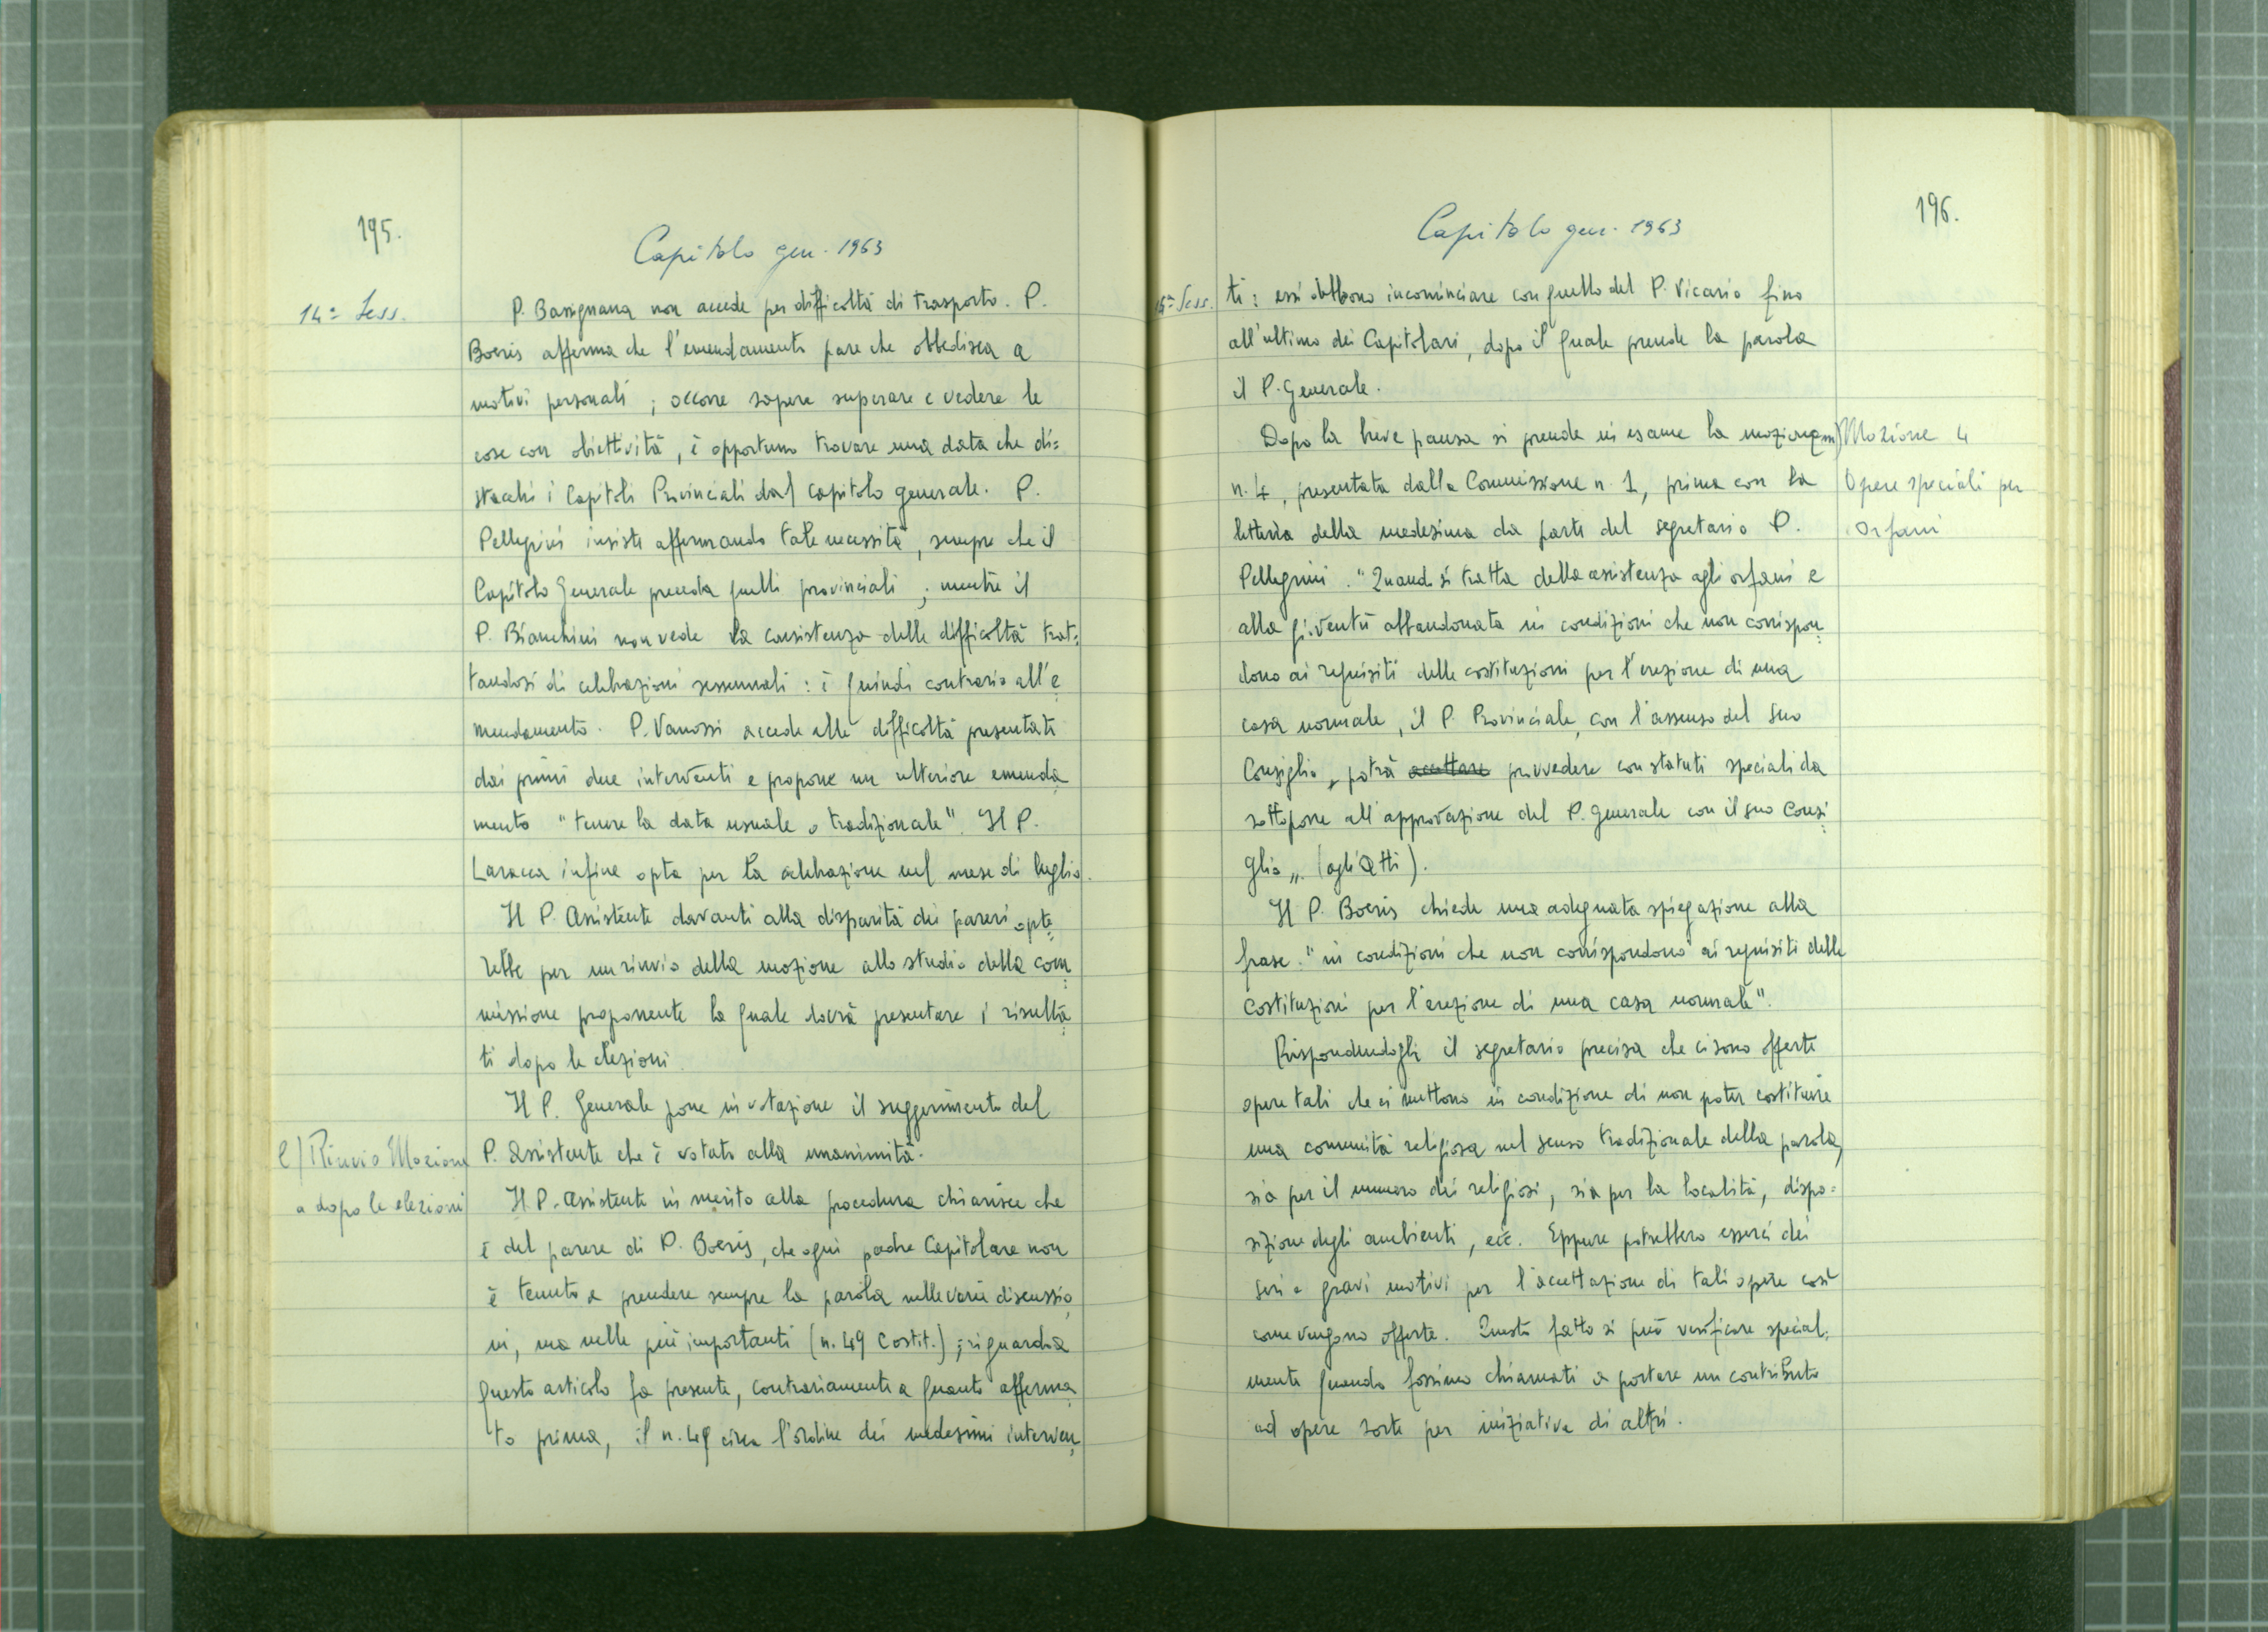 195.
Capitolo gen. 1963
14ª Sess.
P. Bassignana non accede per difficoltà di trasporto. P.
Boeris afferma che l'emendamento pare che obbedisca a
motivi personali; occorre sapere superare e vedere le
cose con obiettività, è opportuno trovare una data che di=
stacchi i Capitoli Provinciali dal capitolo generale. P.
Pellegrini insiste affermando tale necessità, sempre che il
Capitolo Generale preceda quelli provinciali; mentre il
P. Bianchini non vede la consistenza delle difficoltà trat=
tandosi di celebrazioni sessennali: è quindi contrario all'e
mendamento. P. Vanossi accede alle difficoltà presentate
dai primi due interventi e propone un ulteriore emenda
mento "tenere la data usuale o tradizionale". Il P.
Laracca infine opta per la celebrazione nel mese di luglio.
Il P. Assistente davanti alla disparità dei pareri opte
rebbe per un rinvio della mozione allo studio della com
missione proponente la quale dovrà presentare i risulta
ti dopo le elezioni.
Il P. Generale pone in votazione il suggerimento del
l) Rinvio Mozione
P. Assistente che è votato alla unanimità.
a dopo le elezioni
Il P. Assistente in merito alla procedura chiarisce che
è del parere di P. Boeris, che ogni padre Capitolare non
è tenuto a prendere sempre la parola nelle varie discussio
ni, ma nelle più importanti (n. 49 Costit.); riguardo a
questo articolo fa presente, contrariamente a quanto afferma
to prima, il n. 49 circa l'ordine dei medesimi interven
196.
Capitolo gen. 1963
15ª Sess.
ti: essi debbono incominciare con quello del P. Vicario fino
all'ultimo dei Capitolari, dopo il quale prende la parola
il P. Generale.
Dopo la breve pausa si prende in esame la mozione
m) Mozione 4
n. 4, presentata dalla Commissione n. 1, prima con la
Opere speciali per
lettura della medesima da parte del segretario P.
Orfani
Pellegrini. "Quando si tratta della assistenza agli orfani e
alla gioventù abbandonata in condizioni che non corrispon
dono ai requisiti delle costituzioni per l'erezione di una
casa normale, il P. Provinciale, con l'assenso del suo
Consiglio, potrà accettare provvedere con statuti speciali da
sottoporre all'approvazione del P. Generale con il suo Consi
glio„. (agli Atti).
Il P. Boeris chiede una adeguata spiegazione alla
frase: "in condizioni che non corrispondono ai requisiti delle
Costituzioni per l'erezione di una casa normale".
Rispondendogli il segretario precisa che ci sono offerte
opere tali che ci mettono in condizione di non poter costituire
una comunità religiosa nel senso tradizionale della parola,
sia per il numero dei religiosi, sia per la località, dispo=
sizione degli ambienti, ecc. Eppure potrebbero esserci dei
seri e gravi motivi per l'accettazione di tali opere così
come vengono offerte. Questo fatto si può verificare special=
mente quando fossimo chiamati a portare un contributo
ad opere sorte per iniziativa di altri.